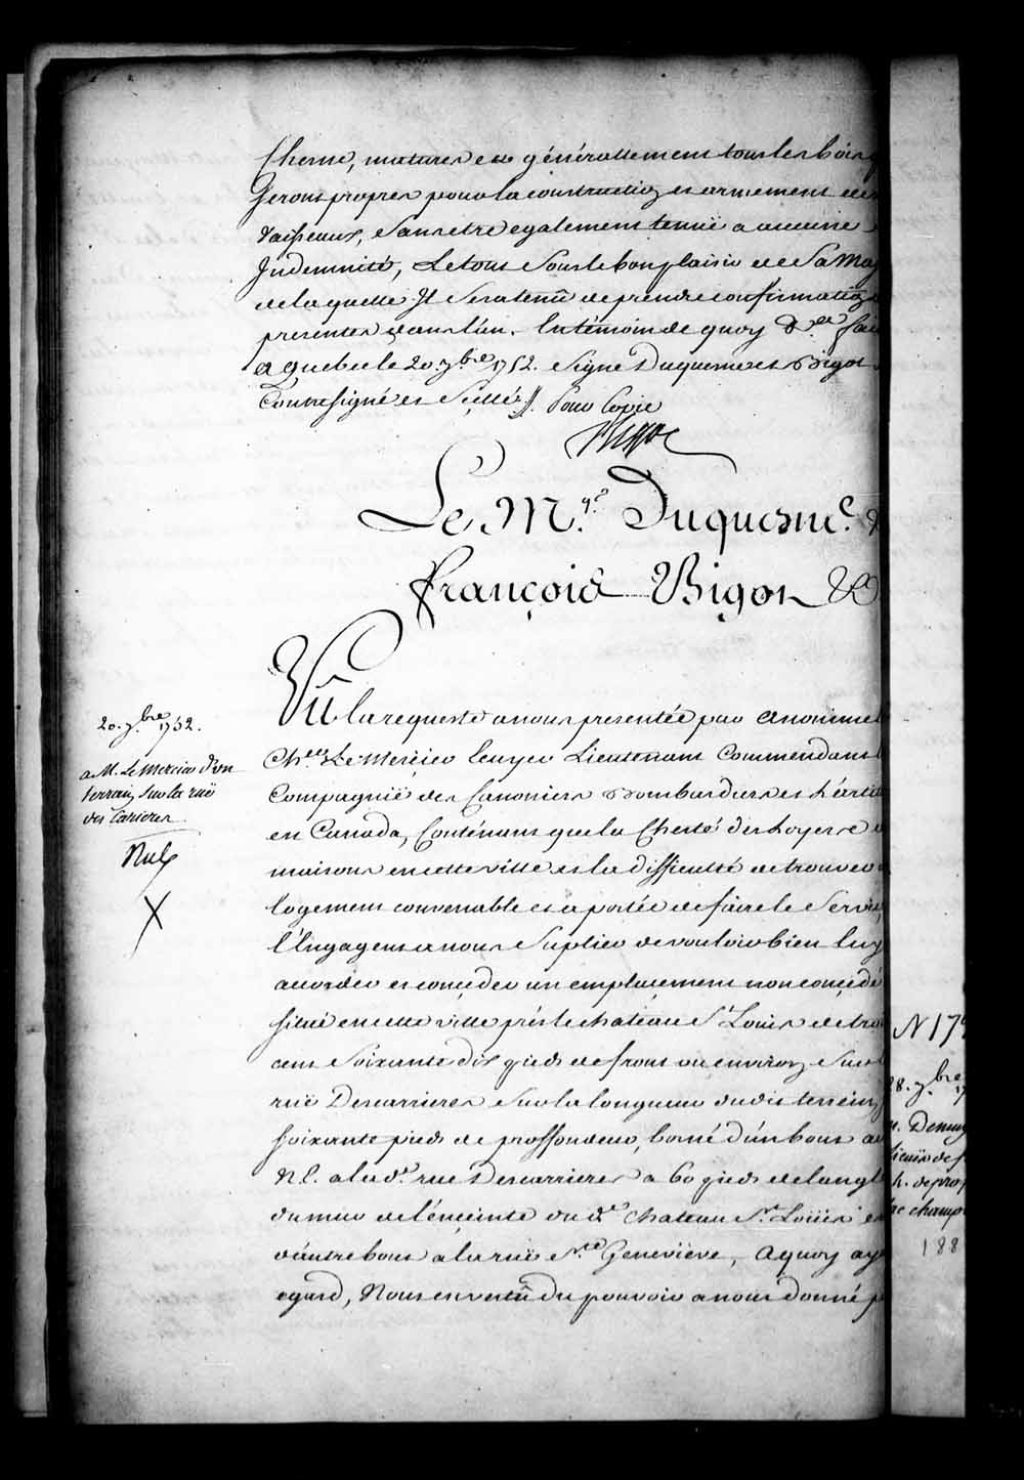 Chesne, matures et générallement tous les bois q
Seront propres pour la construction et armement des
Vaisseaux, Sans etre egalement tenuë a aucune
Indemnité, Le tout Sous le bon plaisir de Sa Maj
de laquelle Il Sera tenû de prendre confirmation
presentes dans l'an. En témoin de quoy &.ca fait
a Quebec le 20. 7.bre 1752. Signé Duquesne et Bigot
Contresigné et Scellé //. Pour Copie
Bigot
Le M.qis Duquesne. &
françois Bigot &c
Vû la requeste a nous presentée par
Ch.er Le Mercier Ecuyer Lieutenant Commendant
Compagnië des Canoniers Bombardiers et L'artil
en Canada, Contënant que la Cherté des Loyers de
maisons en cette ville et la difficulté de trouver
logement convenable et a portée de faire le Servic
l'Engagent a nous Suplier de vouloir bien luy
accorder et conçeder un emplaçement non conçedé
Situé en cette ville près le chateau S.t Loüis de trois
cent Soixante dix pieds de front ou environ Sur l
ruë Descarrieres Sur la longueur du dit terrein
Soixante pieds de proffondeur, borné d'un bout au
N.E. a la d.e rue Descarrieres a 60 pieds de langle
du mur de l'énçeinte du d.t Chateau S.t Loüis et
d'autre bout a la ruë S.te Geneviève, A quoy aya
egard, Nous en vertû du pouvoir a nous donné p
20. 7.bre 1752.
a M. Le Mercier d'un
terrain Sur la ruë
des Carieres
Nul
X
N 17
28. 7.bre 17
h. de prof
champ
188